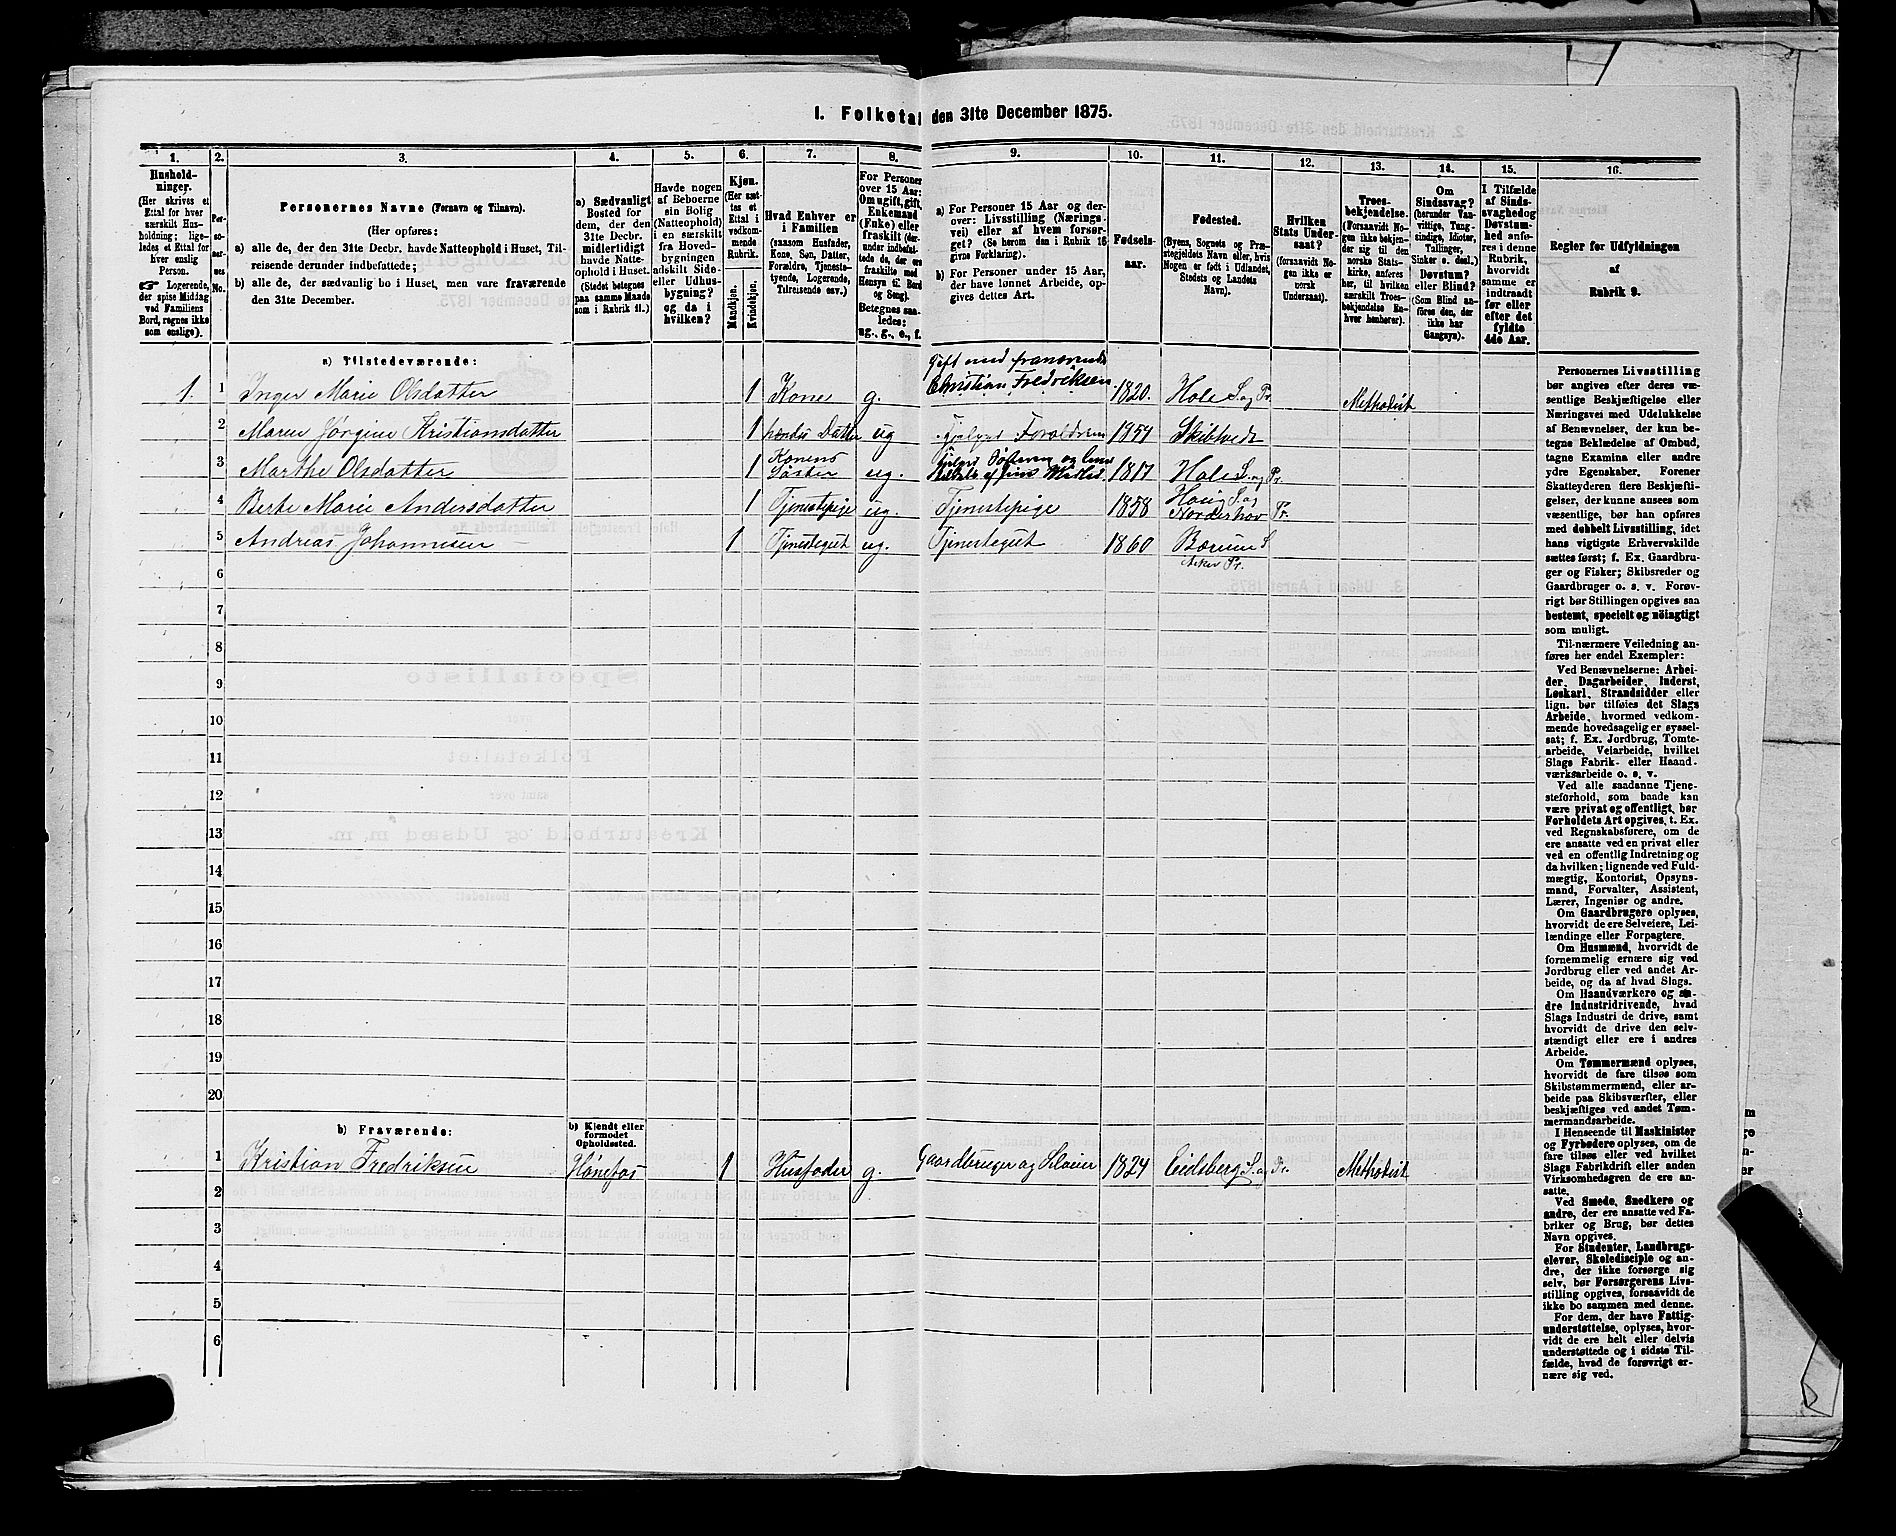 1. Folketal den 31te December 1875.
1.
2.
3.
4.
5.
6.
7.
8.
9.
10.
11.
12.
13.
14.
15.
16.
Hushold-
ninger.
(Her skrives et
Ettal for hver
særskilt Hus-
holdning; lige-
ledes et Ettal for
hver enslig
Person.
☞ Logerende,
der spise Middag
ved Familiens
Bord, regnes ikke
som enslige).
Per-
so-
ner-
nes
No.
Personernes Navne (Fornavn og Tilnavn).
(Her opføres:
a) alle de, der den 31te Decbr. havde Natteophold i Huset, Til-
reisende derunder indbefattede;
b) alle de, der sædvanlig bo i Huset, men vare fraværende
den 31te December.
a) Sædvanligt
Bosted for
dem, der den
31te Decbr.
midlertidigt
havde Natte-
ophold i Huset.
(Stedet betegnes
paa samme Maade
som i Rubrik 11.)
Havde nogen
af Beboerne
sin Bolig
(Natteophold)
i en særskilt
fra Hoved-
bygningen
adskilt Side-
eller Udhus-
bygning?
og da i
hvilken?
Kjøn.
(Her sæt-
tes et
Ettal i
vedkom-
mende
Rubrik.
Mandkjøn.
Kvindekjøn.
Hvad Enhver er
i Familien
(saasom Husfader,
Kone, Søn, Datter,
Forældre, Tjeneste-
tyende, Logerende,
Tilreisende osv.)
For Personer
over 15 Aar:
Om ugift, gift,
Enkemand
(Enke) eller
fraskilt (der-
under indbefat-
tede de, der ere
fraskilte med
Hensyn til Bord
og Seng).
Betegnes saa-
ledes:
ug., g., e., f.
a) For Personer 15 Aar og der-
over: Livsstilling (Nærings-
vei) eller af hvem forsør-
get? (Se herom den i Rubrik 16
givne Forklaring).
b) For Personer under 15 Aar,
der have lønnet Arbeide, op-
gives dettes Art.
Fødsels-
aar.
Fødested.
(Byens, Sognets og Præ-
stegjeldets Navn eller, hvis
Nogen er født i Udlandet,
Stedets og Landets
Navn).
Hvilken
Stats Under-
saat?
(forsaavidt No-
gen ikke er
norsk
Undersaat).
Troes-
bekjendelse.
(Forsaavidt No-
gen ikke bekjen-
der sig til den
norske Stats-
kirke, anføres
her, til hvilken
særskilt Troes-
bekjendelse En-
hver henhører).
Om
Sindssvag?
(herunder Van-
vittige, Tung-
sindige, Idioter,
Tullinger,
Sinker o. desl.)
Døvstum?
eller Blind?
(Som Blind an-
føres den, der
ikke har
Gangsyn).
I Tilfælde
af Sinds-
svaghed og
Døvstum-
hed anfø-
res i denne
Rubrik,
hvorvidt
samme er
indtraadt
før eller
efter det
fyldte
4de Aar.
Regler for Udfyldningen
af
Rubrik 9.
a) Tilstedeværende:
1. 1 Inger Marie Olsdatter 1 Kone g. Gift med fraværende Christian Fredriksen 1820. Hole S. og Pr. Methodist
2 Maren Jørgine Kristiansdatter 1 hendes Datter ug Hjelper Forældrene 1854 Skibtvedt
3 Marthe Olsdatter 1 Konens Søster ug. 1817 Hole S. og Pr.
4 Berte Marie Andersdatter 1 Tjenestepige ug. Tjenestepige 1858 Houg S. og Norderhov Pr.
5 Andreas Johannesen 1 Tjenestegut ug. Tjenestegut 1860 Bærum S Asker Pr.
6
7
8
9
10
11
12
13
14
15
16
17
18
19
20
b) Fraværende:
b) Kjendt eller
formodet
Opholdssted.
1 Kristian Fredriksen Hønefos 1 Husfader g. Gaardbruger og Selveier 1824 Eidsberg S. og Pr. Methodist
2
3
4
5
6
Personernes Livsstilling
bør angives efter deres væ-
sentlige Beskjæftigelse eller
Næringsvei med Udelukkelse
af Benævnelser, der kun be-
tegne Beklædelse af Ombud,
tagne Examina eller andre
ydre Egenskaber. Forener
Skatteyderen flere Beskjæfti-
gelser, der kunne ansees som
væsentlige, bør han opføres
med dobbelt Livsstilling, idet
hans vigtigste Erhvervskilde
sættes først; f. Ex. Gaardbru-
ger og Fisker; Skibsreder og
Gaardbruger o. s. v. Forøv-
rigt bør Stillingen opgives saa
bestemt, specielt og nøiagtigt
som muligt.
Til nærmere Veiledning an-
føres her endel Exempler:
Ved Benævnelserne: Arbei-
der, Dagarbeider, Inderst,
Løskarl, Strandsidder eller
lign. bør tilføies det Slags
Arbeide, hvormed vedkom-
mende hovedsagelig er syssel-
sat; f. Ex. Jordbrug, Tomte-
arbeide, Veiarbeide, hvilket
Slags Fabrik- eller Haand-
værksarbeide o. s. v.
Ved alle saadanne Tjene-
steforhold, som baade kan
være privat og offentligt, bør
Forholdets Art opgives, t. Ex.
ved Regnskabsførere, om de
ere ansatte ved en privat eller
ved en offentlig Indretning og
da hvilken; lignende ved Fuld-
mægtig, Kontorist, Opsyns-
mand, Forvalter, Assistent,
Lærer, Ingeniør og andre.
Om Gaardbrugere oplyses,
hvorvidt de ere Selveiere, Lei-
lændinge eller Forpagtere.
Om Husmænd, hvorvidt de
fornemmelig ernære sig ved
Jordbrug eller ved andet Ar-
beide, og da af hvad Slags.
Om Haandværkere og an-
dre Industridrivende, hvad
Slags Industri de drive, samt
hvorvidt de drive den selv-
stændigt eller ere i andres
Arbeide.
Om Tømmermænd oplyses,
hvorvidt de fare tilsøs som
Skibstømmermænd, eller ar-
beide paa Skibsværfter, eller
beskjæftiges ved andet Tøm-
mermandsarbeide.
I Henseende til Maskinister
og Fyrbødere oplyses, om de
fare tilsøs eller ved hvilket
Slags Fabrikdrift eller anden
Virksomhedsgren de ere an-
satte.
Ved Smede, Snedkere og
andre, der ere ansatte ved Fa-
briker og Brug, bør dettes
Navn opgives.
For Studenter, Landbrugs-
elever, Skoledisciple og an-
dre, der ikke forsørge sig
selv, bør Forsørgerens Livs-
stilling opgives, forsaavidt de
ikke bo sammen med denne.
For dem, der have Fattig-
understøttelse, oplyses, hvor-
vidt de ere helt eller delvis
understøttede og i sidste Til-
fælde, hvad de forøvrigt er-
nære sig ved.